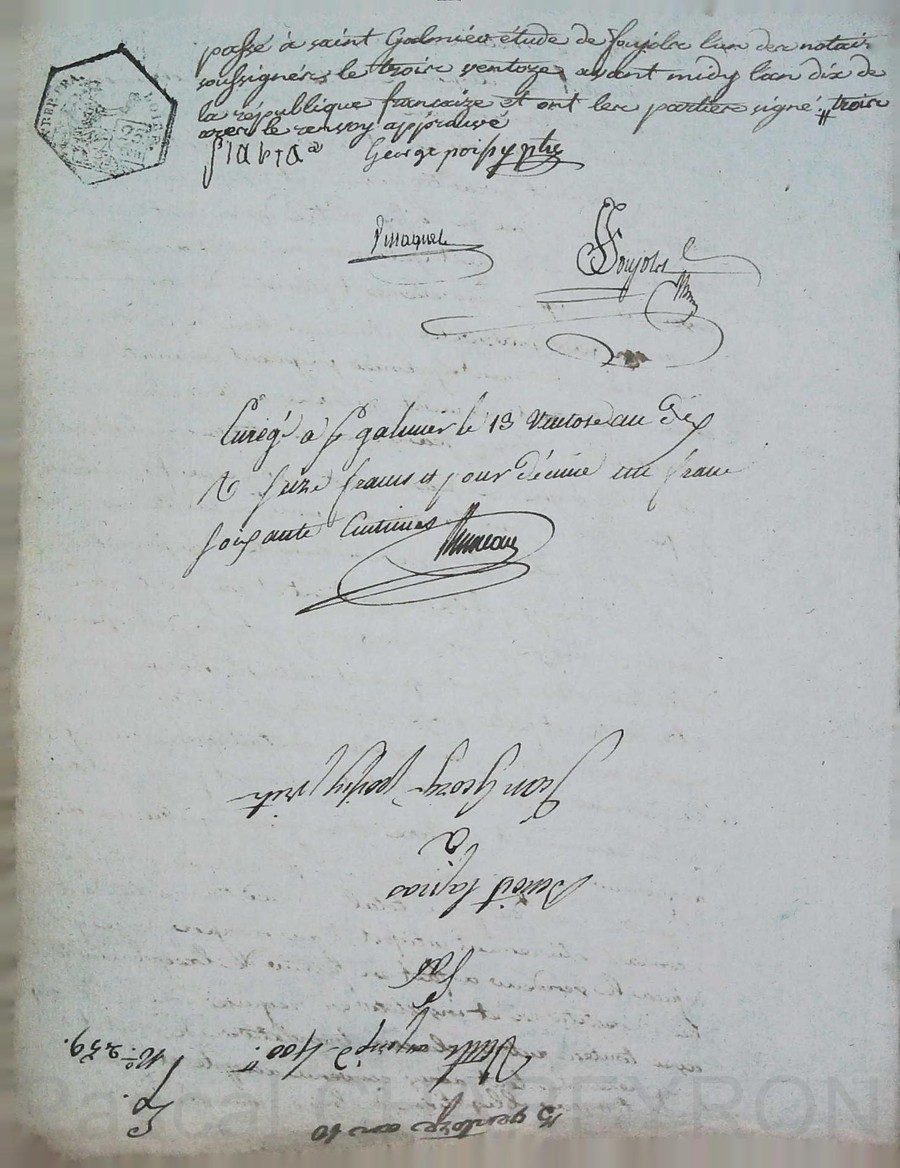 passé à saint Galmier étude de foujols lun des notair
soussignés le trois ventoze avant midy lan dix de
la république francaize et ont les parties signé trois
avec le renvoy approuvé
George
Pissaquel
Foujols
Enregé a st galmier le 13 Ventose an Dix
R seize francs et pour décime un franc
soixante Centimes
Jean George
a
Benoit
400
N° 259.
13 ventoze an 10
LOIRE
Pascal CH EYRON